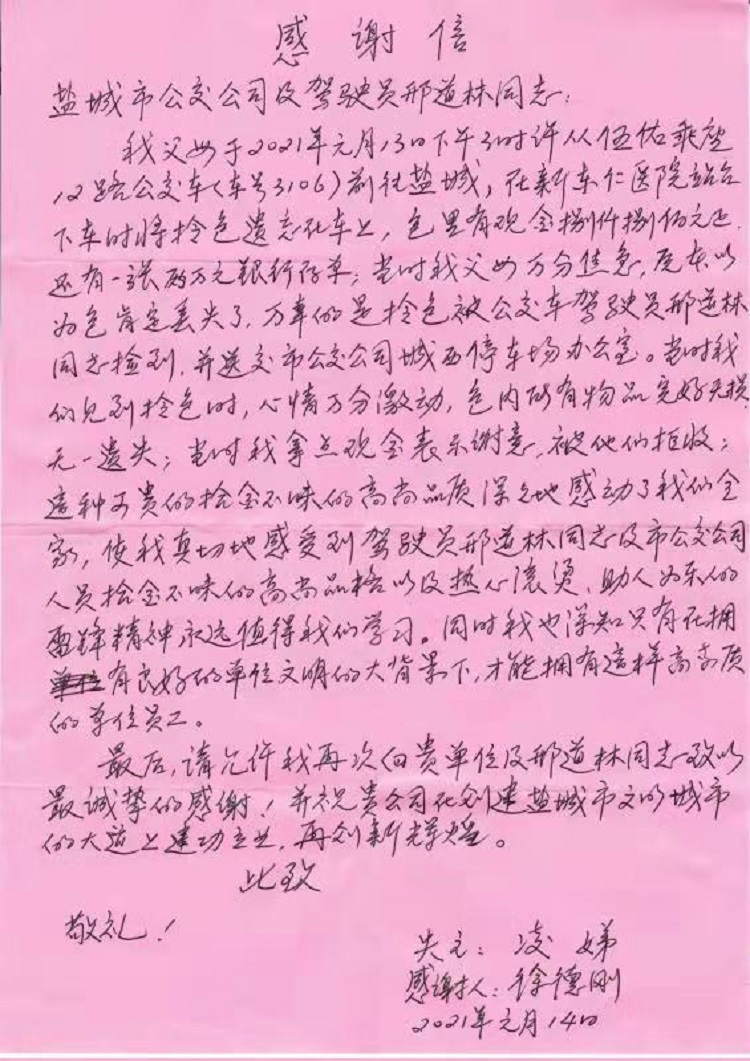 感谢信
盐城市公交公司及驾驶员邢道林同志:
我父母于2021年元月13日下午3时许从伍佑乘座
12路公交车(车号3106)前往盐城,在新东仁医院站台
下车时将拎包遗忘在车上,包里有现金捌仟捌佰元正.
还有一张两万元银行存单;当时我父母万分焦急,原来以
为包肯定丢失了,万幸的是拎包被公交车驾驶员邢道林
同志捡到,并送交市公交公司城西停车场办公室。当时我
们见到拎包时,心情万分激动,包内所有物品完好无损
无一遗失;当时我拿点现金表示谢意,被他们拒收;
这种可贵的拾金不昧的高尚品质深深地感动了我们全
家,使我真切地感受到驾驶员邢道林同志及市公交公司
人员拾金不昧的高尚品格以及热心滚烫、助人为乐的
雷锋精神永远值得我们学习。同时我也深知只有在拥
有良好的单位文明的大背景下,才能拥有这样高素质
的单位员工。
最后,请允许我再次向贵单位及邢道林同志致以
最诚挚的感谢!并祝贵公司在创建盐城市文明城市
的大道上建功立业,再创新辉煌。
此致
敬礼!
失主:凌娣
感谢人:徐德刚
2021年元月14日